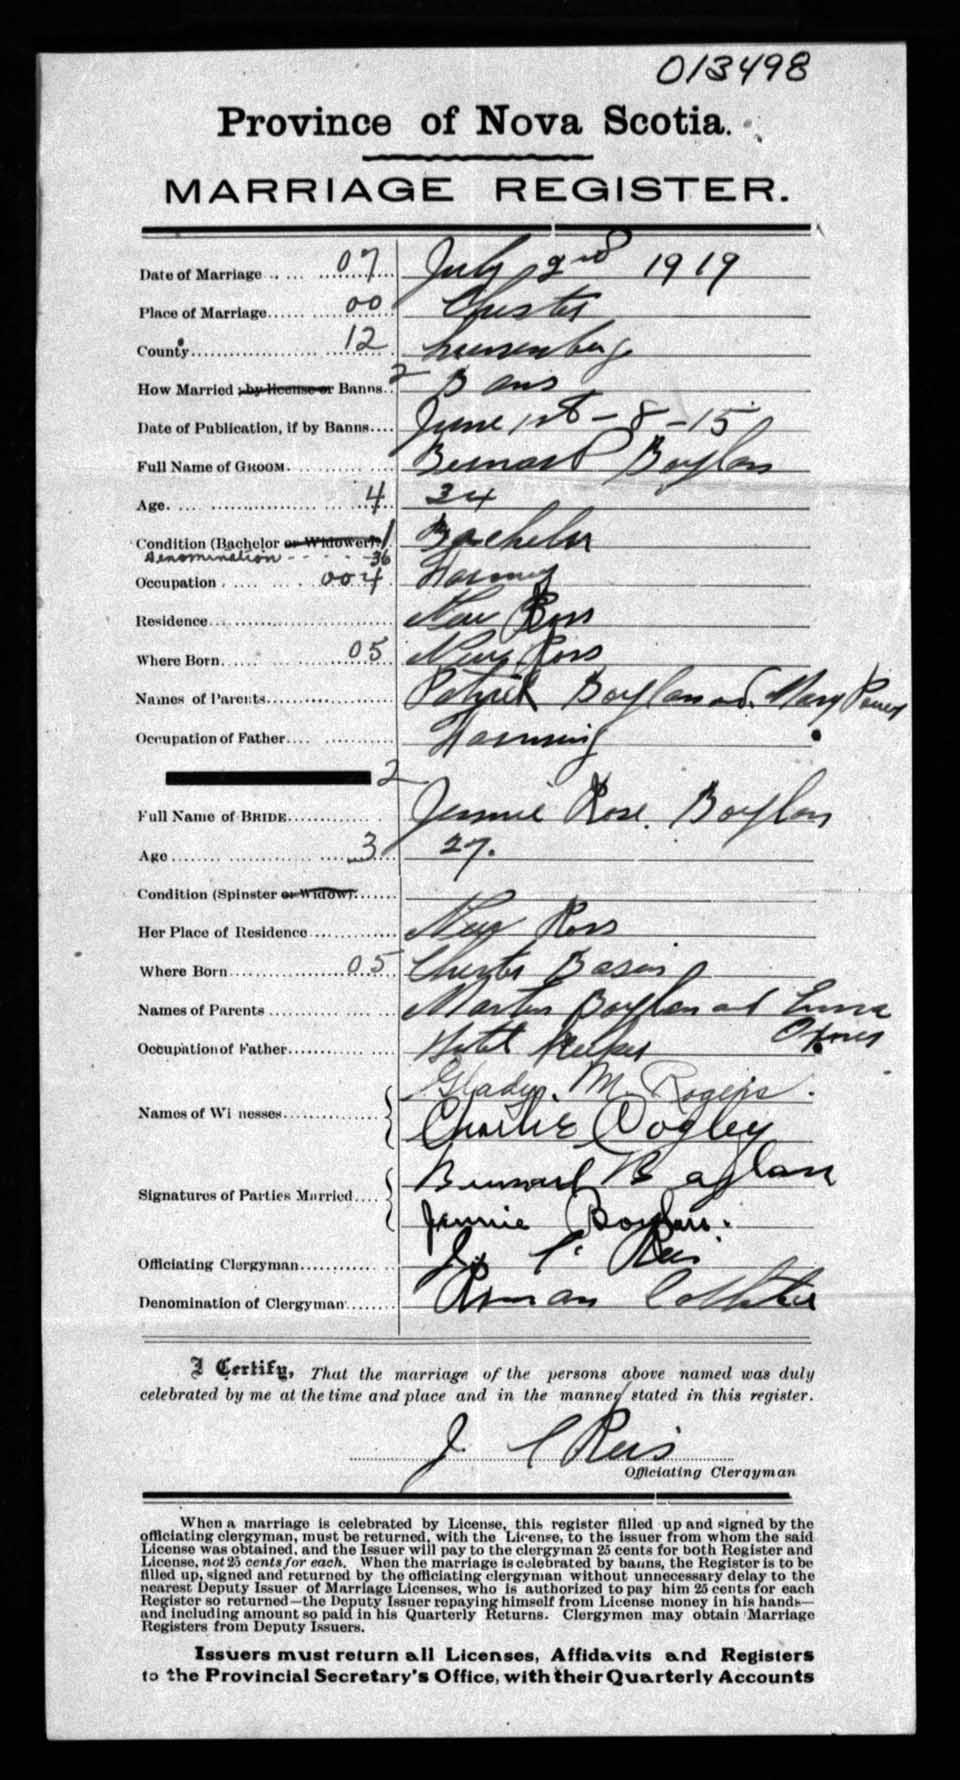 013498
Province of Nova Scotia.
MARRIAGE REGISTER.
Date of Marriage 07 July 2nd 1919
Place of Marriage 00 Chester
County 12 Lunenburg
How Married; by license or Banns. 2 Bans
Date of Publication, if by Banns June 1st - 8 - 15
Full Name of GROOM. Bernard Boylan
Age. 4 34
Condition (Bachelor or Widower). 1 Bachelor
Denomination 36
Occupation 004 Farming
Residence New Ross
Where Born 05 New Ross
Names of Parents Patrick Boylan and Mary
Occupation of Father Farming
2
Full Name of BRIDE Jennie Rose Boylan
Age 3 27.
Condition (Spinster or Widow).
Her Place of Residence New Ross
Where Born 05 Chester Basin
Names of Parents Martin Boylan and
Occupation of Father Hotel Keeper
Names of Witnesses Gladys. M. Rogers.
Charlie Cogley
Signatures of Parties Married Bernard Boylan
Jennie Boylan.
Officiating Clergyman
Denomination of Clergyman Roman Catholic
I Certify, That the marriage of the persons above named was duly
celebrated by me at the time and place and in the manner stated in this register.
J
Officiating Clergyman
When a marriage is celebrated by License, this register filled up and signed by the
officiating clergyman, must be returned, with the License, to the issuer from whom the said
License was obtained, and the Issuer will pay to the clergyman 25 cents for both Register and
License, not 25 cents for each. When the marriage is celebrated by banns, the Register is to be
filled up, signed and returned by the officiating clergyman without unnecessary delay to the
nearest Deputy Issuer of Marriage Licenses, who is authorized to pay him 25 cents for each
Register so returned—the Deputy Issuer repaying himself from License money in his hands—
and including amount so paid in his Quarterly Returns. Clergymen may obtain Marriage
Registers from Deputy Issuers.
Issuers must return all Licenses, Affidavits and Registers
to the Provincial Secretary's Office, with their Quarterly Accounts